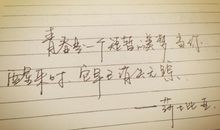 青春是一个短暂的美梦，当你
醒来时，它早已消失无踪。
——莎士比亚